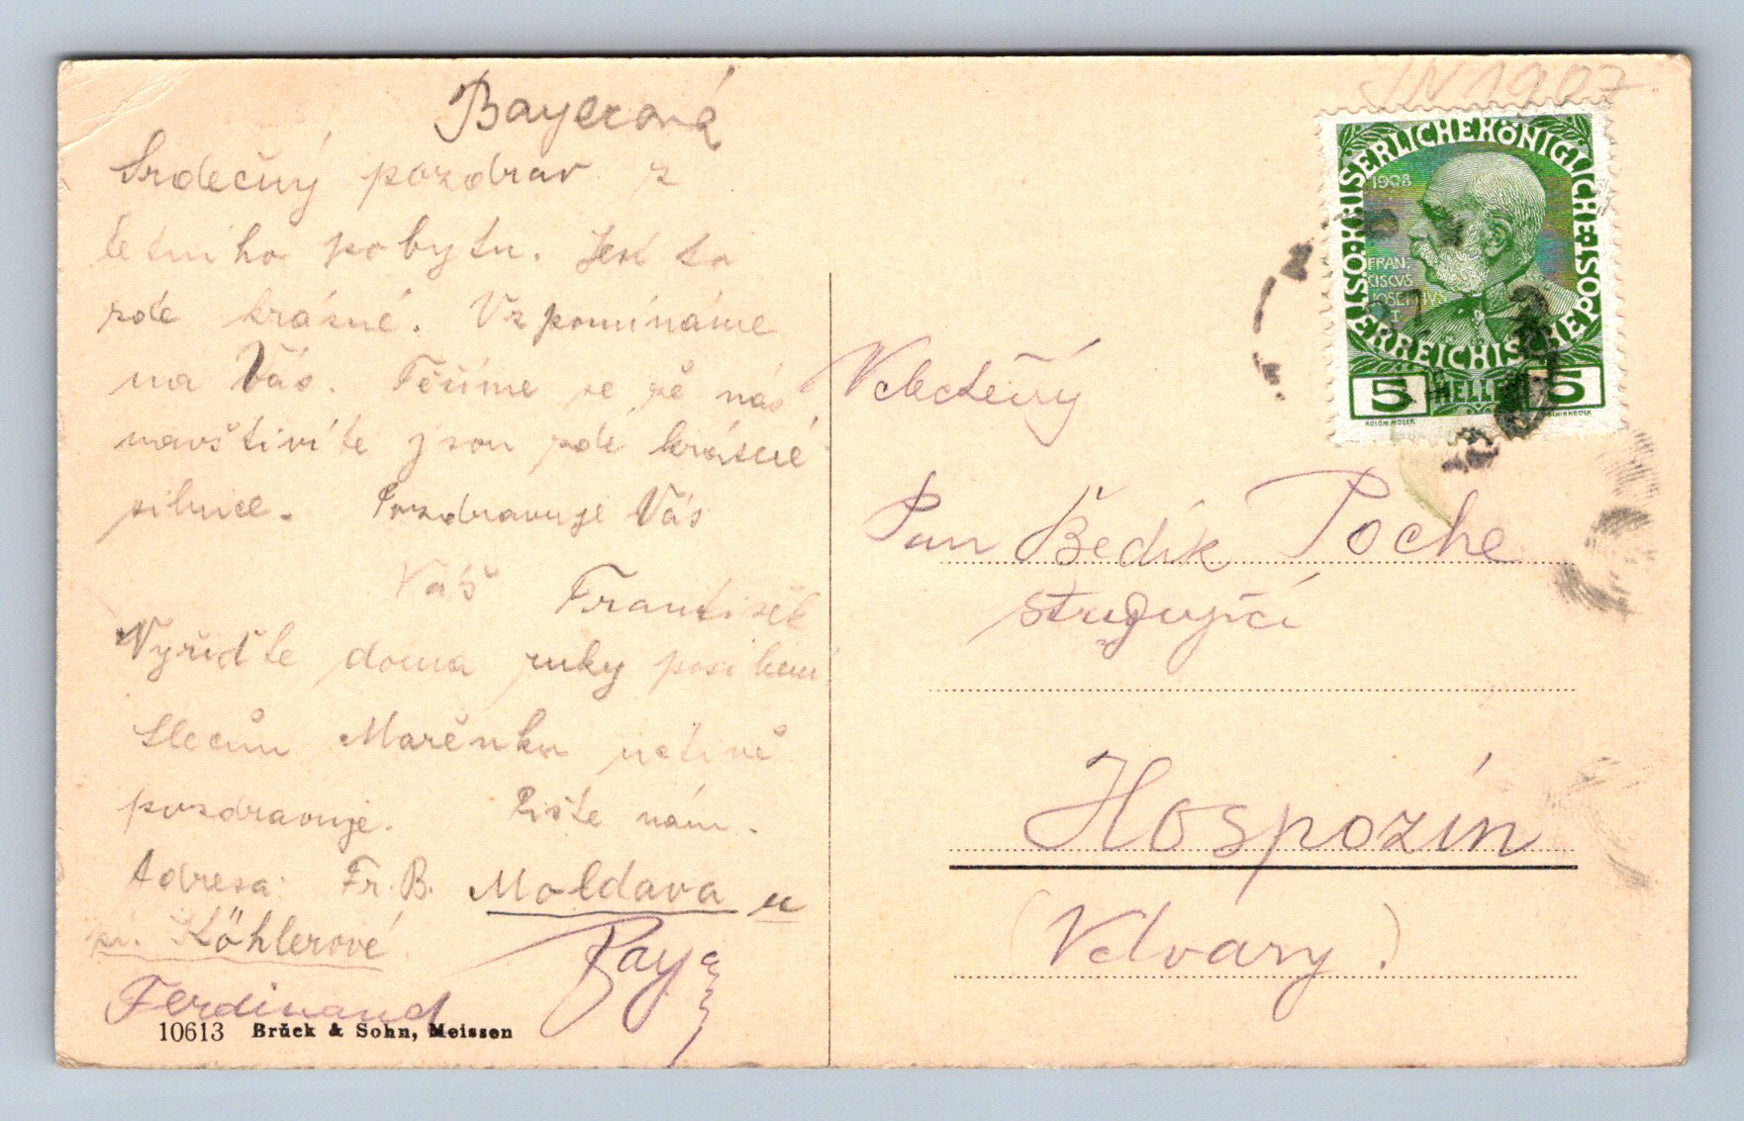 Bayerová
Srdečný pozdrav z
letního pobytu. Jest to
zde krásné. Vzpomínáme
na Vás. Těšíme se že nás
navštívíte jsou zde krásné
silnice. Pozdravuje Vás
Váš František
Vyřiďte doma ruky políbení
Slečnu Mařenku uctivě
pozdravuje. Pište nám.
Adresa: Fr. B. Moldava u
pí. Köhlerové
Ferdinand Bay
10613 Brück & Sohn, Meissen
JN 1907
KAISERLICHEKÖNIGLICHE ÖSTERREICHISCHE POST
1908
FRAN
CISCVS
JOSEPHVS
I
5 HELLER 5
KOLOM. MOSER
Velectěný
Pan Bedřik Poche
studující
Hospozín
(Velvary)